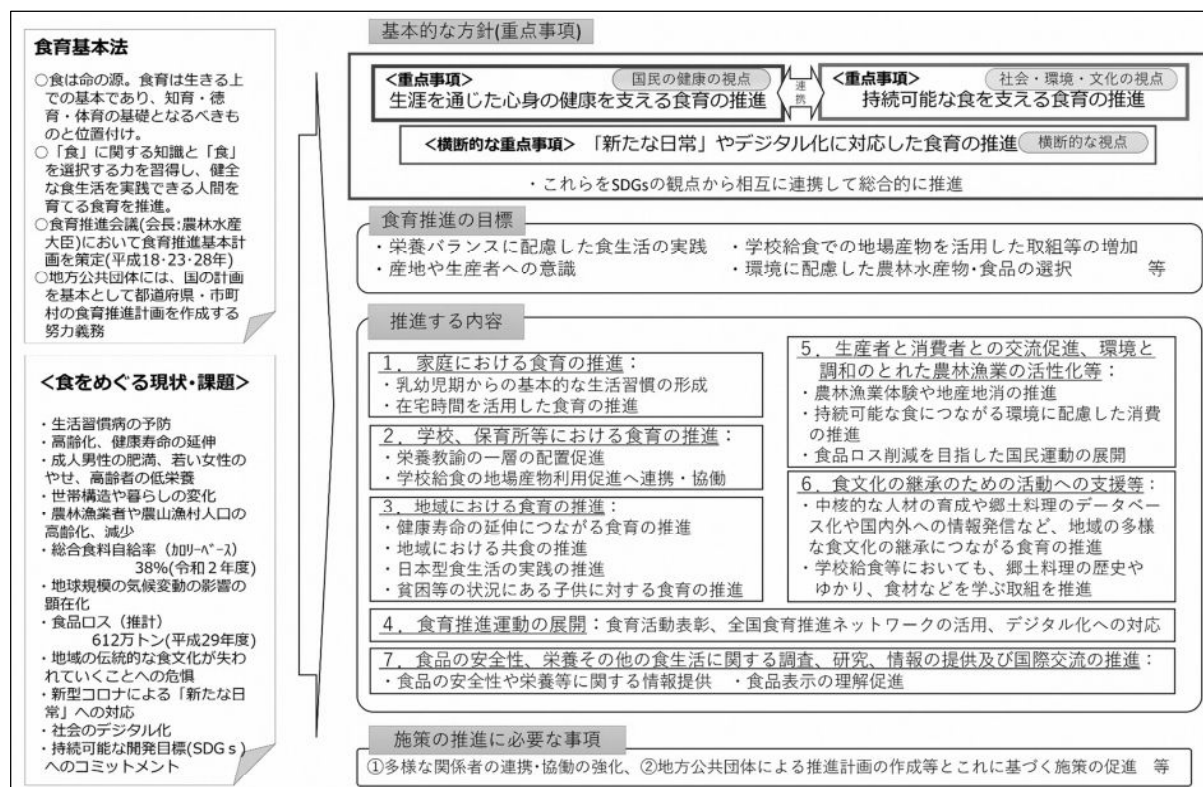 食育基本法
○食は命の源。食育は生きる上
での基本であり、知育・徳
育・体育の基礎となるべきも
のと位置付け。
○「食」に関する知識と「食」
を選択する力を習得し、健全
な食生活を実践できる人間を
育てる食育を推進。
○食育推進会議(会長:農林水産
大臣)において食育推進基本計
画を策定(平成18・23・28年)
○地方公共団体には、国の計画
を基本として都道府県・市町
村の食育推進計画を作成する
努力義務
<食をめぐる現状・課題>
・生活習慣病の予防
・高齢化、健康寿命の延伸
・成人男性の肥満、若い女性の
やせ、高齢者の低栄養
・世帯構造や暮らしの変化
・農林漁業者や農山漁村人口の
高齢化、減少
・総合食料自給率（ｶﾛﾘｰﾍﾞｰｽ）
38%(令和２年度)
・地球規模の気候変動の影響の
顕在化
・食品ロス（推計）
612万トン(平成29年度)
・地域の伝統的な食文化が失わ
れていくことへの危惧
・新型コロナによる「新たな日
常」への対応
・社会のデジタル化
・持続可能な開発目標(SDGｓ)
へのコミットメント
基本的な方針(重点事項)
<重点事項> 国民の健康の視点
生涯を通じた心身の健康を支える食育の推進
連携
<重点事項> 社会・環境・文化の視点
持続可能な食を支える食育の推進
<横断的な重点事項> 「新たな日常」やデジタル化に対応した食育の推進 横断的な視点
・これらをSDGsの観点から相互に連携して総合的に推進
食育推進の目標
・栄養バランスに配慮した食生活の実践 ・学校給食での地場産物を活用した取組等の増加
・産地や生産者への意識 ・環境に配慮した農林水産物・食品の選択 等
推進する内容
１．家庭における食育の推進：
・乳幼児期からの基本的な生活習慣の形成
・在宅時間を活用した食育の推進
２．学校、保育所等における食育の推進：
・栄養教諭の一層の配置促進
・学校給食の地場産物利用促進へ連携・協働
３．地域における食育の推進：
・健康寿命の延伸につながる食育の推進
・地域における共食の推進
・日本型食生活の実践の推進
・貧困等の状況にある子供に対する食育の推進
５．生産者と消費者との交流促進、環境と
調和のとれた農林漁業の活性化等：
・農林漁業体験や地産地消の推進
・持続可能な食につながる環境に配慮した消費
の推進
・食品ロス削減を目指した国民運動の展開
６．食文化の継承のための活動への支援等：
・中核的な人材の育成や郷土料理のデータベー
ス化や国内外への情報発信など、地域の多様
な食文化の継承につながる食育の推進
・学校給食等においても、郷土料理の歴史や
ゆかり、食材などを学ぶ取組を推進
４．食育推進運動の展開：食育活動表彰、全国食育推進ネットワークの活用、デジタル化への対応
７．食品の安全性、栄養その他の食生活に関する調査、研究、情報の提供及び国際交流の推進：
・食品の安全性や栄養等に関する情報提供 ・食品表示の理解促進
施策の推進に必要な事項
①多様な関係者の連携・協働の強化、②地方公共団体による推進計画の作成等とこれに基づく施策の促進 等